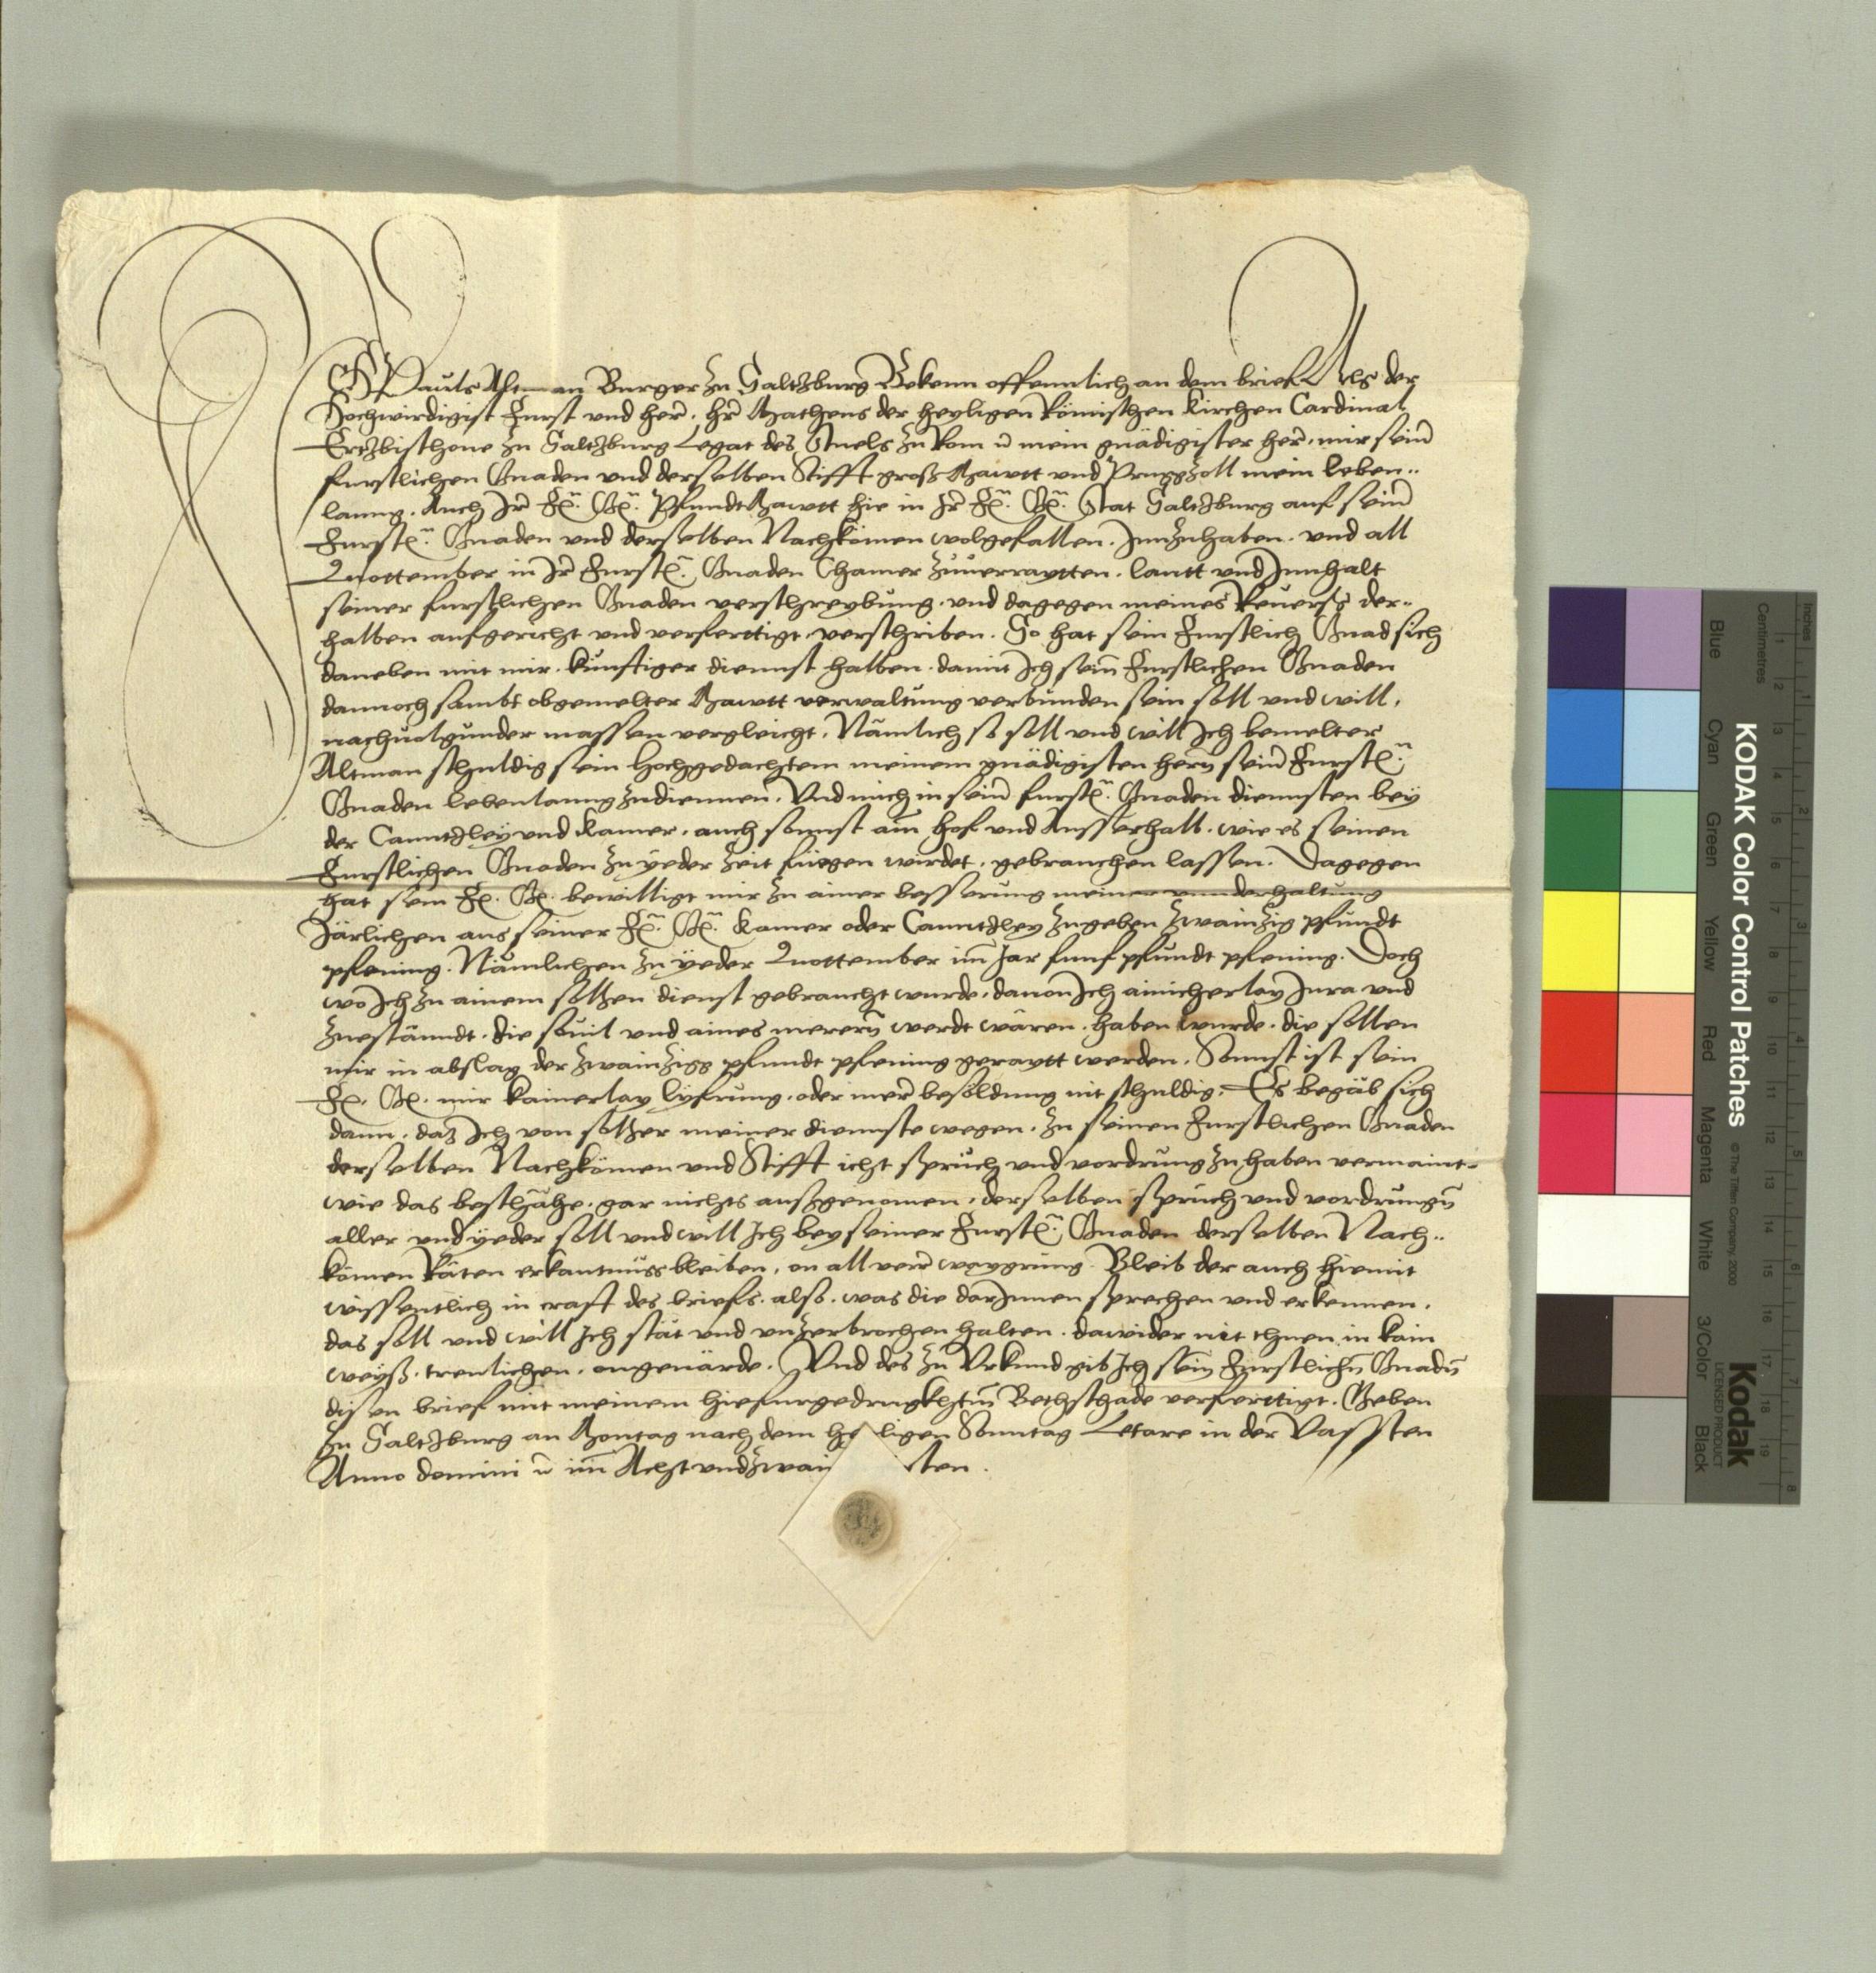 Ich Pauls Altman Burger zu Saltzburg Bekenn offennlich an dem brief Als der
Hochwirdigist Furst und her̄. hr̄ Matheus der heyligen Römischen Kirchen Cardinal
Ertzbischoue zu Saltzburg Legat des Stuels zu Rom ꝛc mein gnädigister her̄. mir sein̄
furstlichen Gnaden und derselben Stifft groß Mawtt und Pruggzoll mein leben..
lanng. Auch Jr̄ F. G. Pfundt Mawtt hie in Jr̄ F. G. Stat Saltzburg auf sein̄
Furstl. Gnaden und derselben Nachkomen wolgefallen. Innzuhaben. und all
Quottember in Jr̄ Furstl. Gnaden Chamer zuuerraytten. lautt und Innhalt
seiner furstlichen Gnaden verschreybung. und dagegen meines Reuerss der..
halben aufgericht und verferttigt verschriben. So hat sein Furstlich Gnad sich
daneben mit mir. kunftiger diennst halben. damit Ich sein̄ Furstlichen Gnaden
dannoch sambt obgemelter Mawtt verwaltung verbunden sein soll und will.
nachuolgunder massen vergleicht. Nämlich so soll und will Ich bemelter
Altman schuldig sein hochgedachtem meinem gnädigisten hern̄ sein̄ Furstl.
Gnaden lebenlanng zudiennen. Vnd mich in sein̄ furstl. Gnaden diennsten bey
der Canntzley und Kamer. auch sonnst am hof und Ausserhalb. wie es seinen
Furstlichen Gnaden zu yeder zeit fuegen wirdet. gebrauchen lassen. Dagegen
hat sein F. G. bewilligt mir zu ainer besserung meiner vnnderhaltung
Järlichen aus seiner F. G. Kamer oder Canntzley zugeben zwainzig pfundt
pfening. Nämlichen zu yeder Quottember im̄ Jar funf pfundt pfening. Doch
wo Ich zu ainem solhen dienst gebraucht wurde. dauon Ich ainicherlay Jura und
Zuestänndt. die souil und aines merern̄ werdt wären. haben wurde. die sollen
mir in abslag der zwainzigg pfundt pfening geraytt werden. Sonnst ist sein
F. G. mir kainerlay lyfrung. oder mer̄ besoldung nit schuldig. Es begäb sich
dann. daz Ich von solher meiner diennste wegen. zu seinen Furstlichen Gnaden
derselben Nachkömen und Stifft icht spruch und vordrung zu haben vermaint.
wie das beschähe. gar nichts außgenomen. derselben spruch und vordrungen̄
aller und yeder soll und will Ich bey seiner Furstl. Gnaden derselben Nach..
kömen Räten erkantnuss bleiben. on all verr̄ waygrung. Bleib der auch hiemit
wissentlich in craft des briefs. also. was die darInnen sprechen und erkennen.
das soll und will Ich stät und vnzerbrochen halten. dawider nit thuen in kain
weyß. treulichen. ongeuärde. Vnd des zu Vrkund gib Ich sein̄ Furstlichn̄ Gnadn̄
disen brief mit meinem hiefurgedrugkhtm̄ Bethschade verferttigt. Geben
zu Saltzburg an Montag nach dem heligen Sonntag Letare in der Vassten
Anno domini ꝛc im̄ Achtundzwain sten.
KODAK Color Control Patches
© The Tiffen Company, 2000
Kodak
LICENSED PRODUCT
Inches
Centimetres
Blue Cyan Green Yellow Red Magenta White 3/Color Black